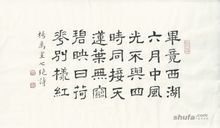 畢竟西湖
六月中風
光不與四
時同接天
蓮葉無窮
碧映日荷
花別樣紅
楊萬里七絕詩
shufa.com